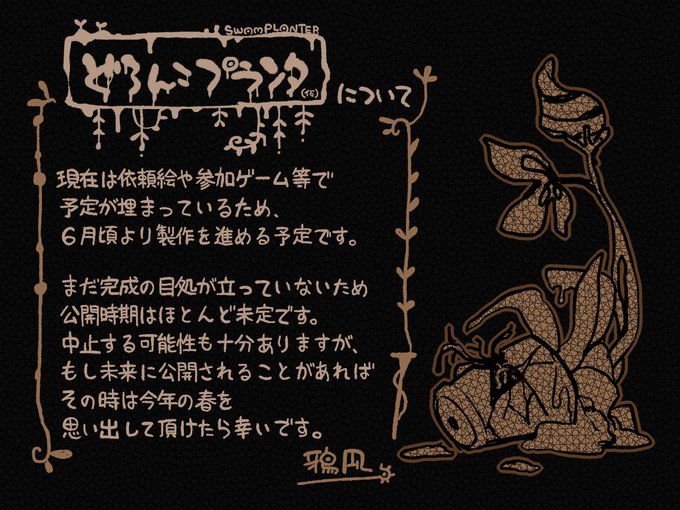 SWAMPLANTER
どろんこプランタ(仮)
について
現在は依頼絵や参加ゲーム等で
予定が埋まっているため、
6月頃より製作を進める予定です。
まだ完成の目処が立っていないため
公開時期はほとんど未定です。
中止する可能性も十分ありますが、
もし未来に公開されることがあれば
その時は今年の春を
思い出して頂けたら幸いです。